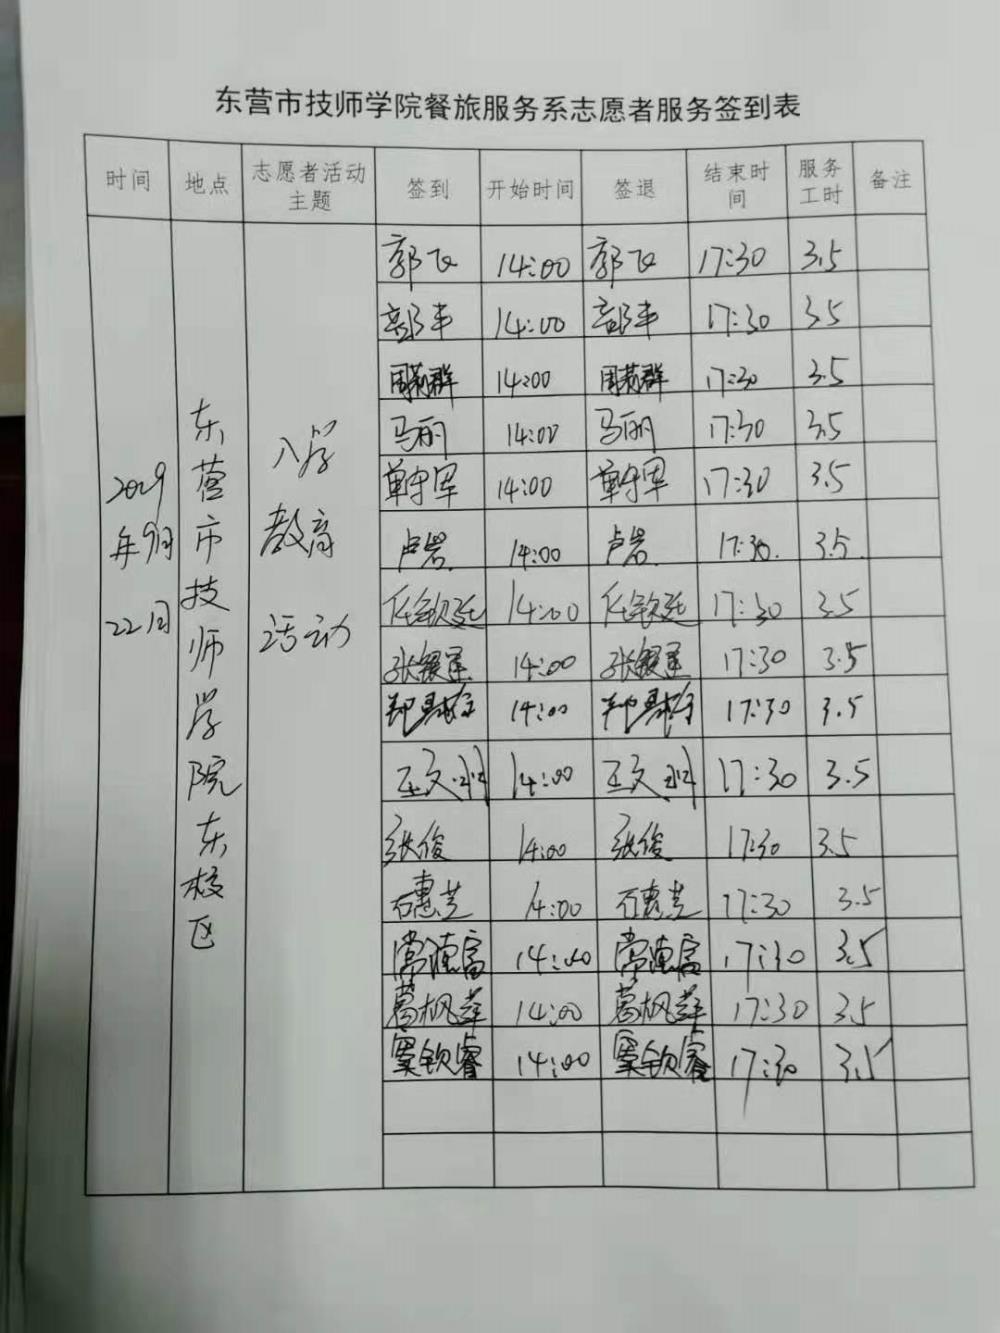 东营市技师学院餐旅服务系志愿者服务签到表
时间 地点 志愿者活动主题 签到 开始时间 签退 结束时间 服务工时 备注
2019年9月22日 东营市技师学院东校区 入学教育活动
郭飞 14:00 郭飞 17:30 3.5
14:00 17:30 3.5
周莉群 14:00 周莉群 17:30 3.5
马丽 14:00 马丽 17:30 3.5
单宇军 14:00 单宇军 17:30 3.5
卢岩 14:00 卢岩 17:30 3.5
任钦廷 14:00 任钦廷 17:30 3.5
张银星 14:00 张银星 17:30 3.5
14:00 17:30 3.5
14:00 17:30 3.5
张俊 14:00 张俊 17:30 3.5
石惠芝 14:00 石惠芝 17:30 3.5
常德富 14:00 常德富 17:30 3.5
葛枫萍 14:00 葛枫萍 17:30 3.5
窦钦睿 14:00 窦钦睿 17:30 3.5